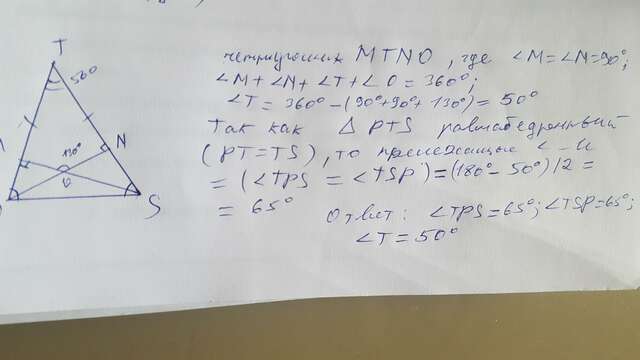 T
50°
N
130°
O
S
четырёхугольник MTNO, где ∠M=∠N=90°;
∠M+∠N+∠T+∠O=360°;
∠T=360°-(90°+90°+130°)=50°
Так как △ PTS равнобедренный
(PT=TS), то прилежащие ∠-и
= (∠TPS = ∠TSP)=(180°-50°)/2=
= 65°
Ответ: ∠TPS=65°; ∠TSP=65°;
∠T=50°